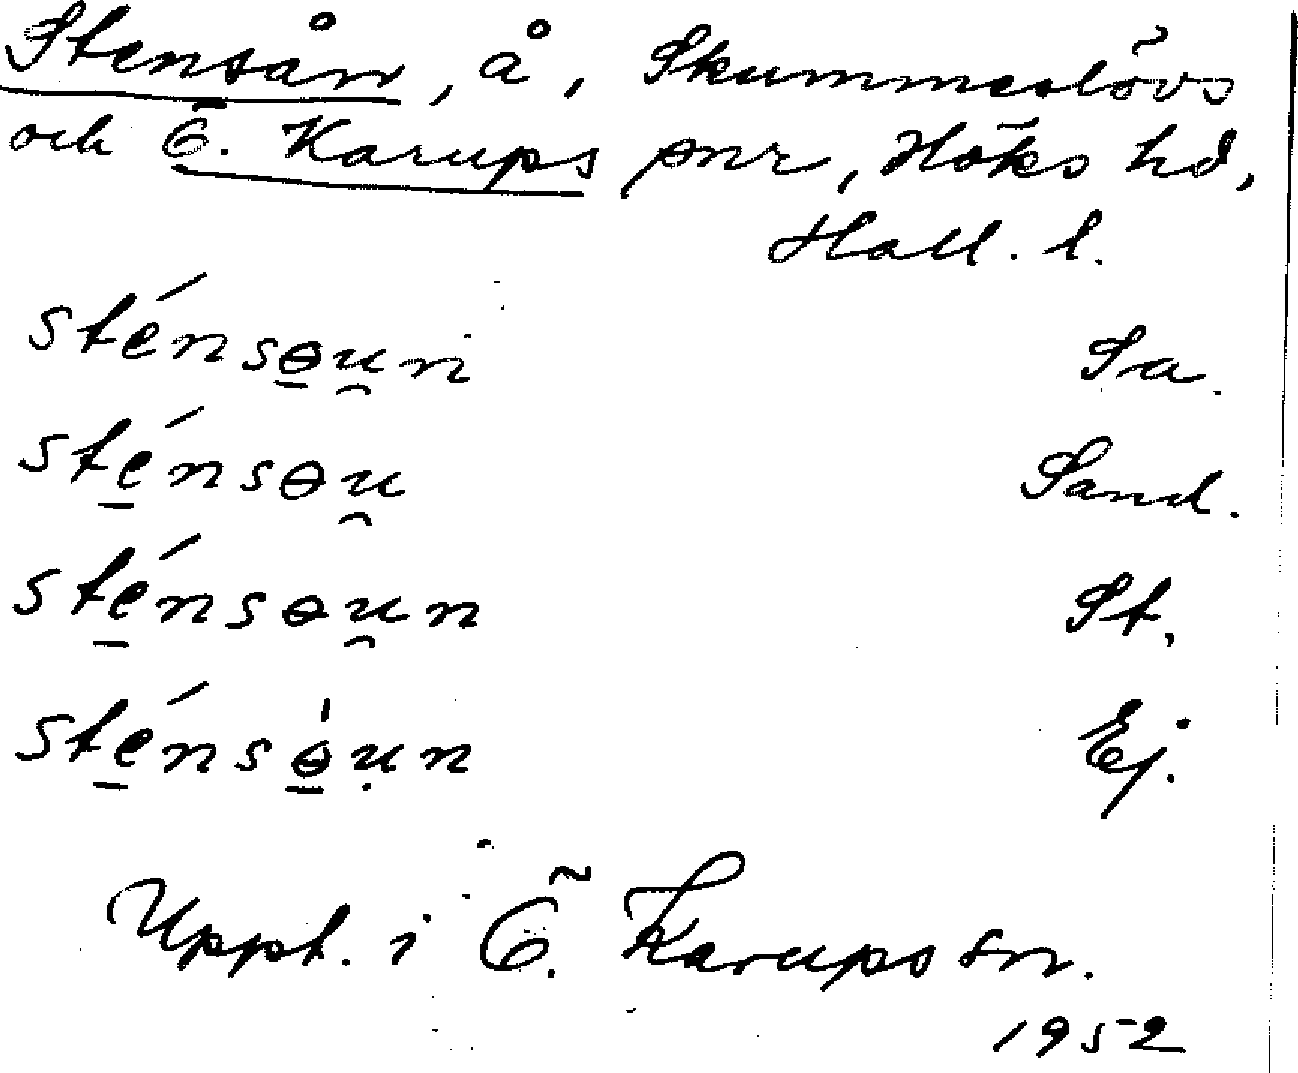 Stensån, å, Skummeslövs
och Ö. Karups snr, Höks hd,
Hall. l.
sténsɵ̱u̯n Sa.
sté̱nsɵu̯ Sand.
sté̱nsɵu̯n St.
sté̱nsɵ̱̍ụn Ej.
Uppt. i Ö. Karups sn.
1952